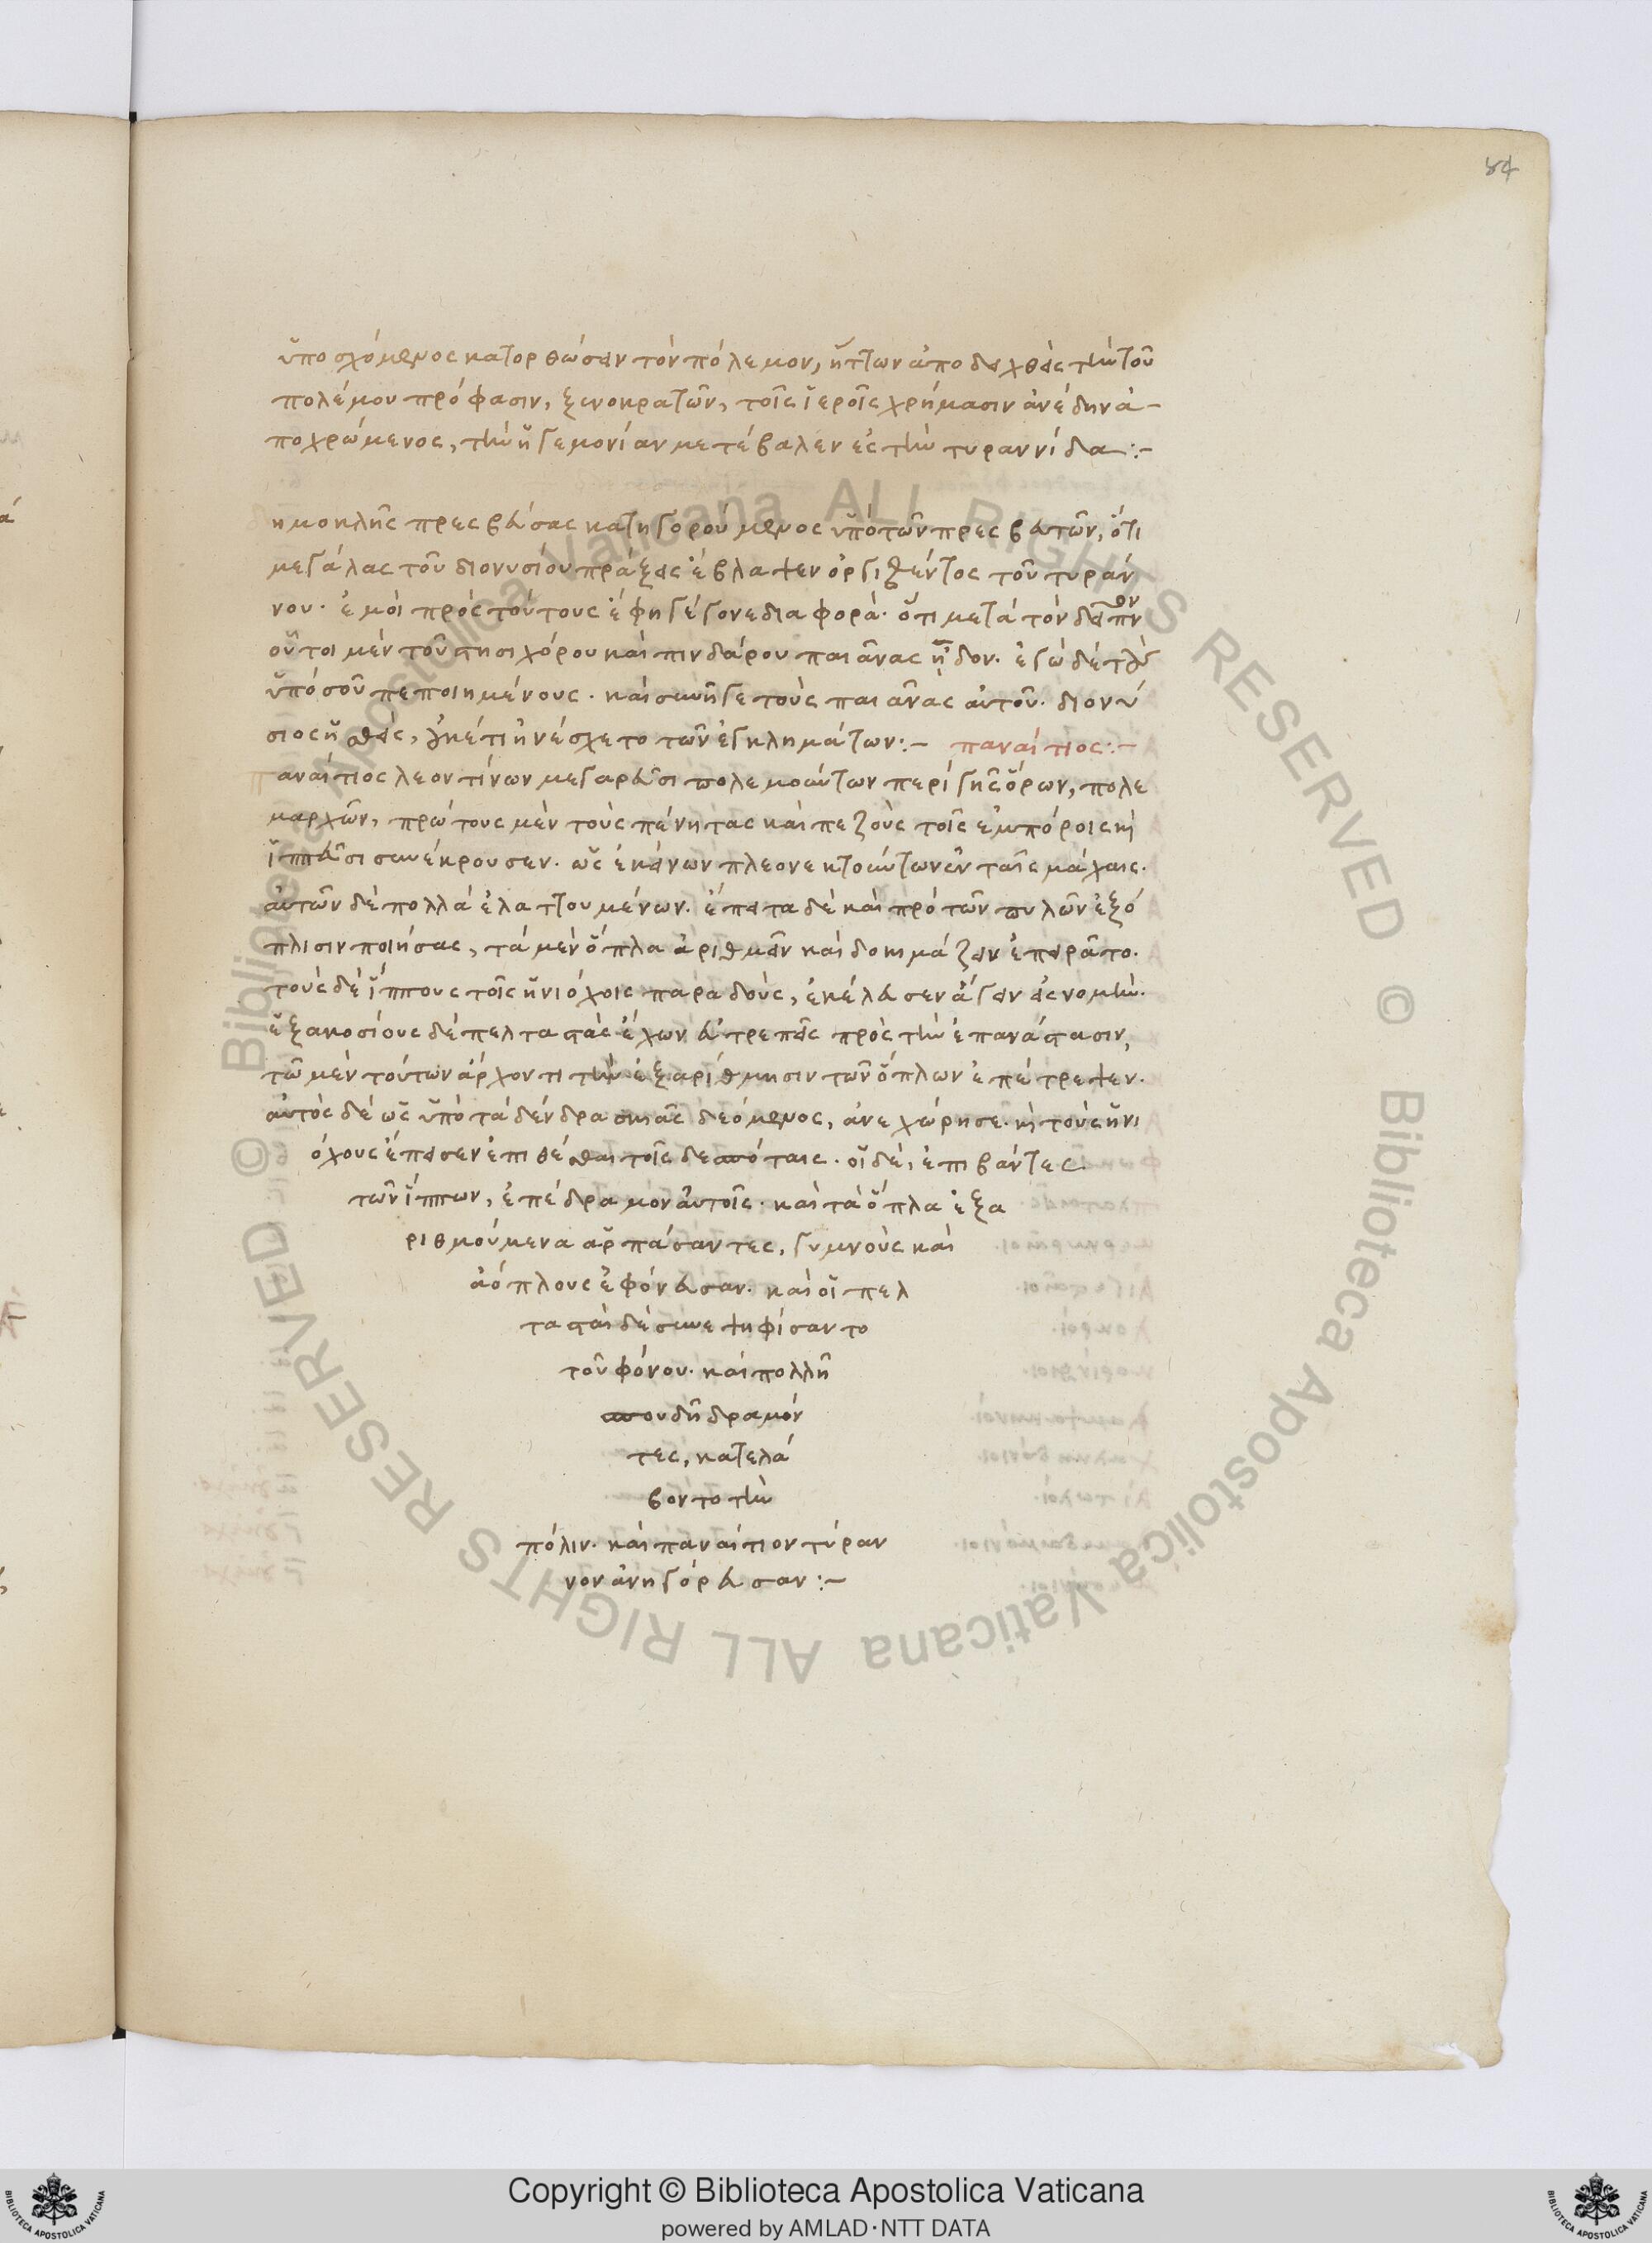 84
ὑποσχόμενος κατορθώσειν τὸν πόλεμον, ἥττων ἀποδειχθεὶς τὴν τοῦ
πολέμου πρόφασιν, ξενοκρατῶν, τοῖς ἱεροῖς χρήμασιν ἀνέδην ἀ-
ποχρώμενος, τὴν ἡγεμονίαν μετέβαλεν ἐς τὴν τυραννίδα:-
ημοκλῆς πρεσβεύσας κατηγορούμενος ὑπὸ τῶν πρεσβευτῶν, ὅτι
μεγάλας τοῦ διονυσίου πράξεις ἔβλαψεν ὀργισθέντος τοῦ τυράν
νου· ἐμοὶ πρὸς τούτους ἔφη γέγονε διαφορά· ὅτι μετὰ τὸν δεῖπνον
οὗτοι μὲν τοῦ στησιχόρου καὶ πινδάρου παιᾶνας ᾖδον· ἐγὼ δὲ τοὺς
ὑπὸ σοῦ πεποιημένους· καὶ συνῆγε τοὺς παιᾶνας αὐτοῦ· διονύ
σιος ἡσθεὶς, οὐκέτι ἠνέσχετο τῶν ἐγκλημάτων:- παναίτιος:-
παναίτιος λεοντίνων μεγαρεῦσι πολεμούντων περὶ γῆς ὅρων, πολε
μαρχῶν, πρώτους μὲν τοὺς πένητας καὶ πεζοὺς τοῖς εὐπόροις καὶ
ἱππεῦσι συνέκρουσεν· ὡς ἐκείνων πλεονεκτούντων ἐν ταῖς μάχαις·
αὐτῶν δὲ πολλὰ ἐλαττουμένων· ἔπειτα δὲ καὶ πρὸ τῶν πυλῶν ἐξό
πλισιν ποιήσας, τὰ μὲν ὅπλα ἀριθμεῖν καὶ δοκιμάζειν ἐπειρᾶτο·
τοὺς δὲ ἵππους τοῖς ἡνιόχοις παραδοὺς, ἐκέλευσεν ἄγειν εἰς νομὴν·
ἑξακοσίους δὲ πελταστὰς ἔχων εὐτρεπεῖς πρὸς τὴν ἐπανάστασιν,
τῶ μὲν τούτων ἄρχοντι τὴν ἐξαρίθμησιν τῶν ὅπλων ἐπέτρεψεν·
αὐτὸς δὲ ὡς ὑπὸ τὰ δένδρα σκιᾶς δεόμενος, ἀνεχώρησε· καὶ τοὺς ἡνι
όχους ἔπεισεν ἐπιθέσθαι τοῖς δεσπόταις· οἱ δὲ, ἐπιβάντες
τῶν ἵππων, ἐπέδραμον αὐτοῖς· καὶ τὰ ὅπλα ἐξα
ριθμούμενα ἁρπάσαντες, γυμνοὺς καὶ
ἀόπλους ἐφόνευσαν· καὶ οἱ πελ
τασταὶ δὲ συνεψηφίσαντο
τοῦ φόνου· καὶ πολλῆ
σπουδῆ δραμόν
τες, κατελά
βοντο τὴν
πόλιν· καὶ παναίτιον τύραν
νον ἀνηγόρευσαν:-
© Biblioteca Apostolica Vaticana ALL RIGHTS RESERVED © Biblioteca Apostolica Vaticana ALL RIGHTS RESERVED
Copyright © Biblioteca Apostolica Vaticana
powered by AMLAD·NTT DATA
BIBLIOTECA APOSTOLICA VATICANA
BIBLIOTECA APOSTOLICA VATICANA